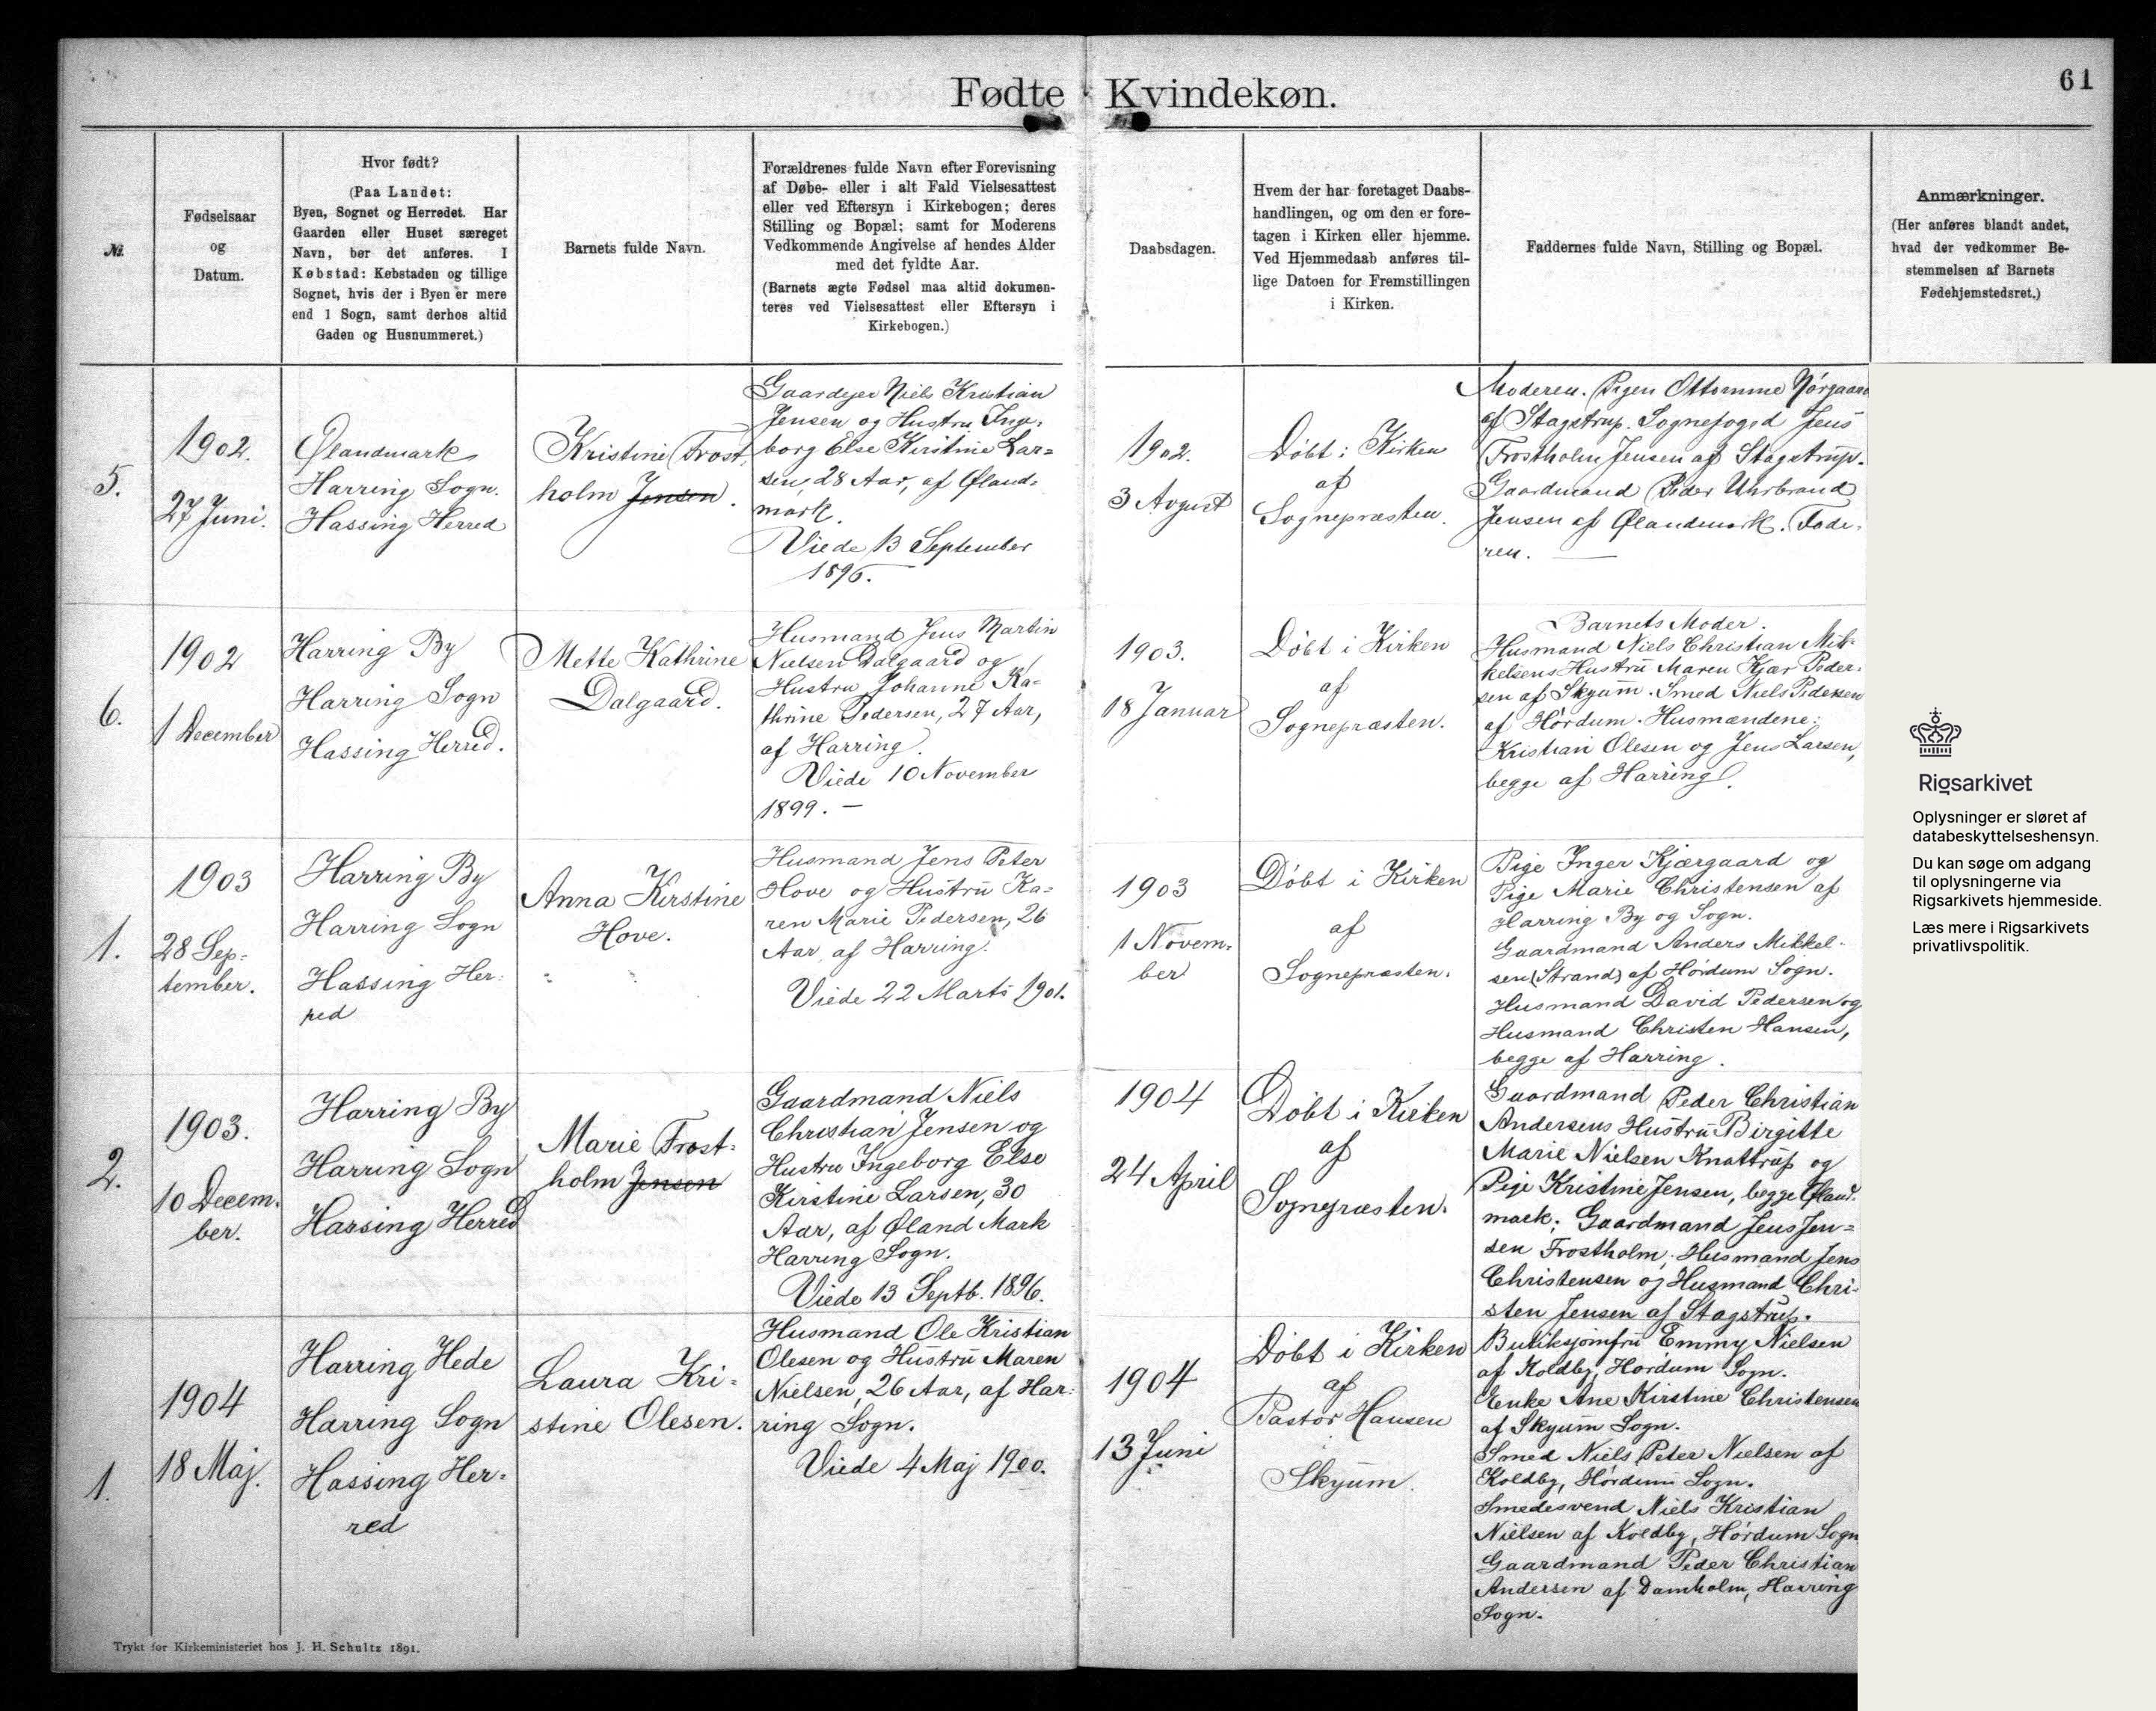 Fødte Kvindekøn.
61
№
Fødselsaar
og
Datum.
Hvor født?
(Paa Landet:
Byen, Sognet og Herredet. Har
Gaarden eller Huset særeget
Navn, bør det anføres. I
Købstad: Købstaden og tillige
Sognet, hvis der i Byen er mere
end 1 Sogn, samt derhos altid
Gaden og Husnummeret.)
Barnets fulde Navn.
Forældrenes fulde Navn efter Forevisning
af Døbe- eller i alt Fald Vielsesattest
eller ved Eftersyn i Kirkebogen; deres
Stilling og Bopæl; samt for Moderens
Vedkommende Angivelse af hendes Alder
med det fyldte Aar.
(Barnets ægte Fødsel maa altid dokumen-
teres ved Vielsesattest eller Eftersyn i
Kirkebogen.)
Daabsdagen.
Hvem der har foretaget Daabs-
handlingen, og om den er fore-
tagen i Kirken eller hjemme.
Ved Hjemmedaab anføres til-
lige Datoen for Fremstillingen
i Kirken.
Faddernes fulde Navn, Stilling og Bopæl.
Anmærkninger.
(Her anføres blandt andet,
hvad der vedkommer Be-
stemmelsen af Barnets
Fødehjemstedsret.)
5.
1902.
27 Juni.
Ølandmark
Harring Sogn.
Hassing Herred
Kristine Frost
holm Jensen.
Gaardejer Niels Kristian
Jensen og Hustru Inge-
borg Else Kirstine Lar=
sen, 28 Aar, af Øland-
mark.
Viede 13 September
1896.
1902.
3 August
Døbt i Kirken
af
Sognepræsten.
Moderen. Pigen Ottomine Nørgaard
af Stagstrup. Sognefoged Jens
Frostholm Jensen af Stagstrup.
Gaardmand Peder Uhrbrand
Jensen af Ølandmark. Fade-
ren.
6.
1902
1 December
Harring By
Harring Sogn
Hassing Herred.
Mette Kathrine
Dalgaard.
Husmand Jens Martin
Nielsen Dalgaard og
Hustru Johanne Ka=
thrine Pedersen, 27 Aar,
af Harring.
Viede 10 November
1899. —
1903.
18 Januar
Døbt i Kirken
af
Sognepræsten.
Barnets Moder.
Husmand Niels Christian Mik-
kelsens Hustru Maren Kjær Peder-
sen af Skyum. Smed Niels Pedersen
af Hørdum. Husmændene:
Kristian Olesen og Jens Larsen,
begge af Harring.
1.
1903
28 Sep-
tember.
Harring By
Harring Sogn
Hassing Her-
red
Anna Kirstine
Hove.
Husmand Jens Peter
Hove og Hustru Ka=
ren Marie Pedersen, 26
Aar, af Harring.
Viede 22 Marts 1901.
1903
1 Novem-
ber
Døbt i Kirken
af
Sognepræsten.
Pige Inger Kjærgaard og
Pige Marie Christensen af
Harring By og Sogn.
Gaardmand Anders Mikkel-
sen (Strand) af Hørdum Sogn.
Husmand David Pedersen og
Husmand Christen Hansen,
begge af Harring.
2.
1903.
10 Decem-
ber.
Harring By
Harring Sogn
Hassing Herred
Marie Frost-
holm Jensen
Gaardmand Niels
Christian Jensen og
Hustru Ingeborg Else
Kirstine Larsen, 30
Aar, af Øland Mark
Harring Sogn.
Viede 13 Septb. 1896.
1904
24 April
Døbt i Kirken
af
Sognepræsten.
Gaardmand Peder Christian
Andersens Hustru Birgitte
Marie Nielsen Knattrup og
Pige Kristine Jensen, begge Øland-
mark; Gaardmand Jens Jen=
sen Frostholm; Husmand Jens
Christensen og Husmand Chri-
sten Jensen af Stagstrup.
1.
1904
18 Maj.
Harring Hede
Harring Sogn
Hassing Her-
red
Laura Kri-
stine Olesen.
Husmand Ole Kristian
Olesen og Hustru Maren
Nielsen, 26 Aar, af Har-
ring Sogn.
Viede 4 Maj 1900.
1904
13 Juni
Døbt i Kirken
af
Pastor Hansen
Skyum.
Butiksjomfru Emmy Nielsen
af Koldby, Hørdum Sogn.
Enke Ane Kirstine Christensen
af Skyum Sogn.
Smed Niels Peter Nielsen af
Koldby, Hørdum Sogn.
Smedesvend Niels Kristian
Nielsen af Koldby, Hørdum Sogn
Gaardmand Peder Christian
Andersen af Damholm, Harring
Sogn.
Trykt for Kirkeministeriet hos J. H. Schultz 1891.
Rigsarkivet
Oplysninger er sløret af
databeskyttelseshensyn.
Du kan søge om adgang
til oplysningerne via
Rigsarkivets hjemmeside.
Læs mere i Rigsarkivets
privatlivspolitik.